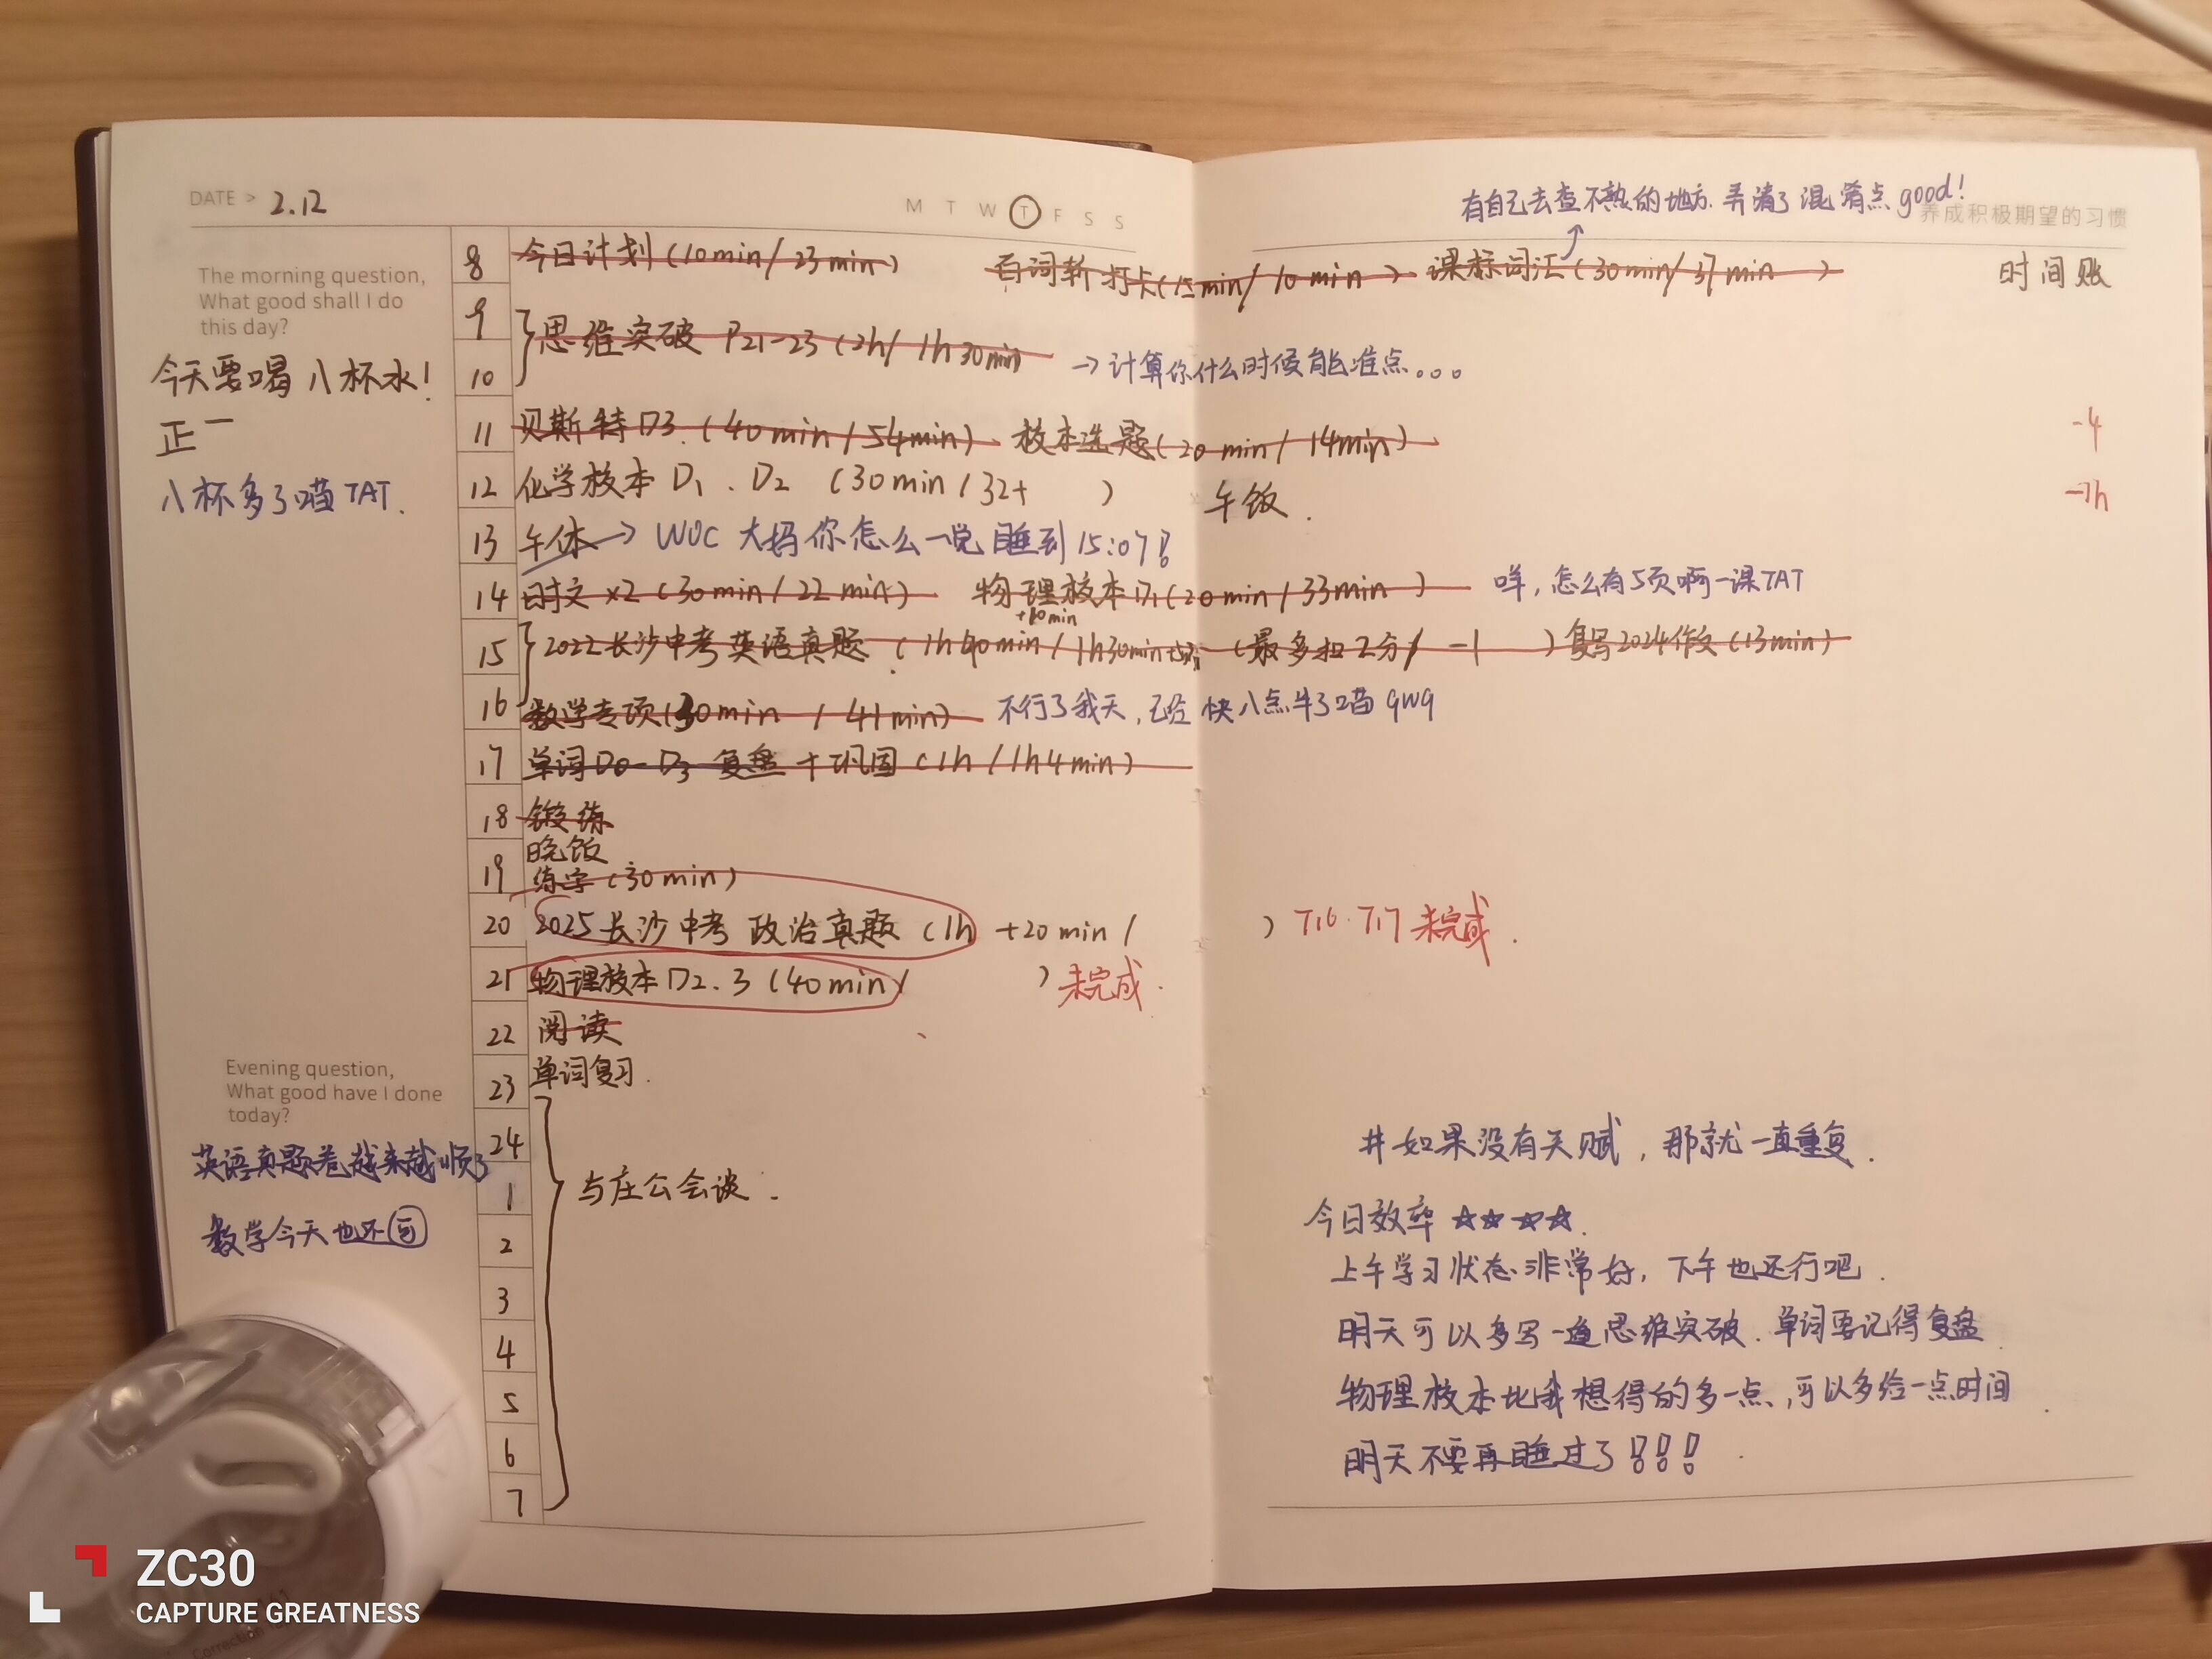 DATE > 2.12
M T W T F S S
The morning question,
What good shall I do
this day?
今天要喝八杯水!
正一
八杯多了喵TAT.
8 今日计划(10min/23min) 百词斩打卡(15min/10min) 课标词汇(30min/37min)
9
思维突破 P21-23 (2h/1h30min) →计算你什么时候能准点。。。
10
11 贝斯特D3.(40min/54min)、校本选题(20min/14min)
12 化学校本D1、D2 (30min/32+ ) 午饭.
13 午休→WOC 大妈你怎么一觉睡到15:07!
14 时文x2(30min/22min) 物理校本D1(20min/33min) 咩,怎么有5页啊一课TAT
+10min
15 2022长沙中考英语真题 (1h40min/1h30min (最多扣2分/ -1 ) 复写2024作文(13min)
16 数学专项(30min / 41min) 不行了我天,已经快八点半了喵qwq
17 单词D0-D3 复盘+巩固(1h/1h4min)
18 锻炼
晚饭
19 练字(30min)
20 2025长沙中考政治真题(1h +20min/ ) T16.T17未完成.
21 物理校本D2.3(40min/ ) 未完成.
22 阅读
23 单词复习.
24
1 与庄公会谈.
2
3
4
5
6
7
Evening question,
What good have I done
today?
英语真题卷越来越顺了
数学今天也还可
有自己去查不熟的地方.弄清了混淆点good!
养成积极期望的习惯
时间账
-4
-1h
#如果没有天赋,那就一直重复.
今日效率☆☆☆☆.
上午学习状态非常好,下午也还行吧.
明天可以多写一道思维突破.单词要记得复盘
物理校本比我想得的多一点,可以多给一点时间.
明天不要再睡过了!!!
ZC30
CAPTURE GREATNESS